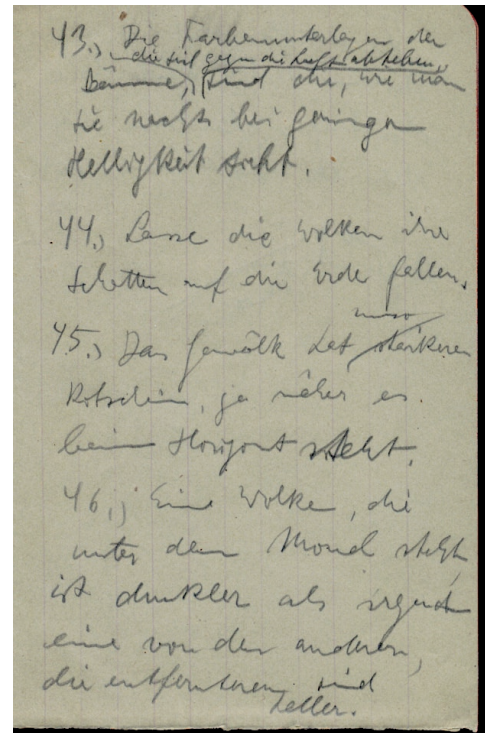 43.) Die Farbenunterlagen der
die sich gegen die Luft abheben,
Bäume, sind die, wie man
sie nachts bei geringer
Helligkeit sieht.
44.) Lasse die Wolken ihre
Schatten auf die Erde fallen.
umso
45.) Das Gewölk hat stärkeren
Rotschein, je näher es
beim Horizont steht.
46.) Eine Wolke, die
unter dem Mond steht,
ist dunkler als irgend
eine von den anderen,
die entfernteren sind
heller.